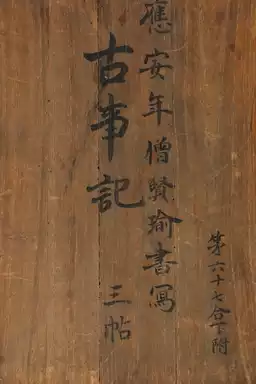 第六十七合下附
應安年僧賢瑜書寫
古事記
三帖